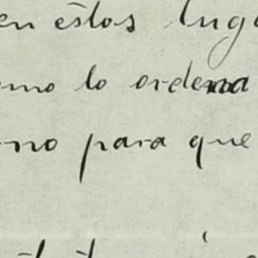 en éstos luga
mo lo ordena
no para que